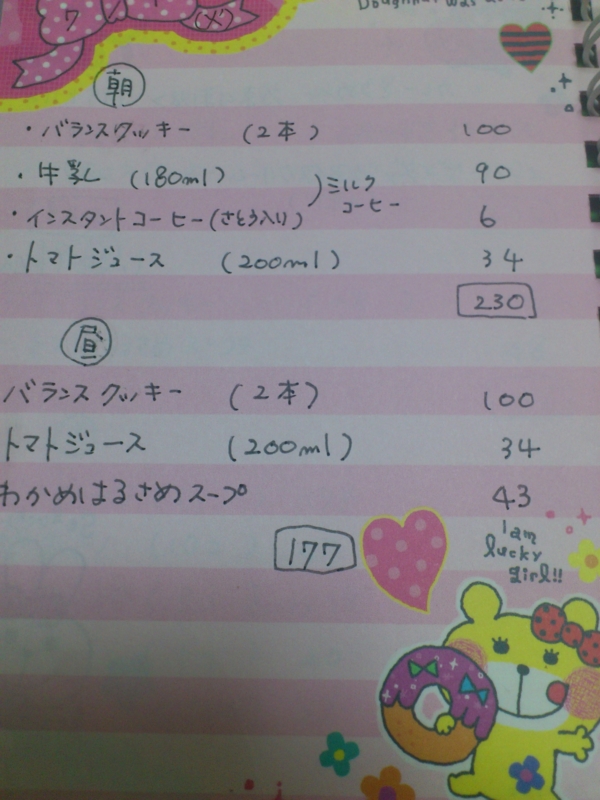 7 / (火)
朝
・バランスクッキー (2本) 100
・牛乳 (180ml) 90
)ミルクコーヒー
・インスタントコーヒー(さとう入り) 6
・トマトジュース (200ml) 34
230
昼
バランスクッキー (2本) 100
トマトジュース (200ml) 34
わかめはるさめスープ 43
177
I am
lucky
girl!!